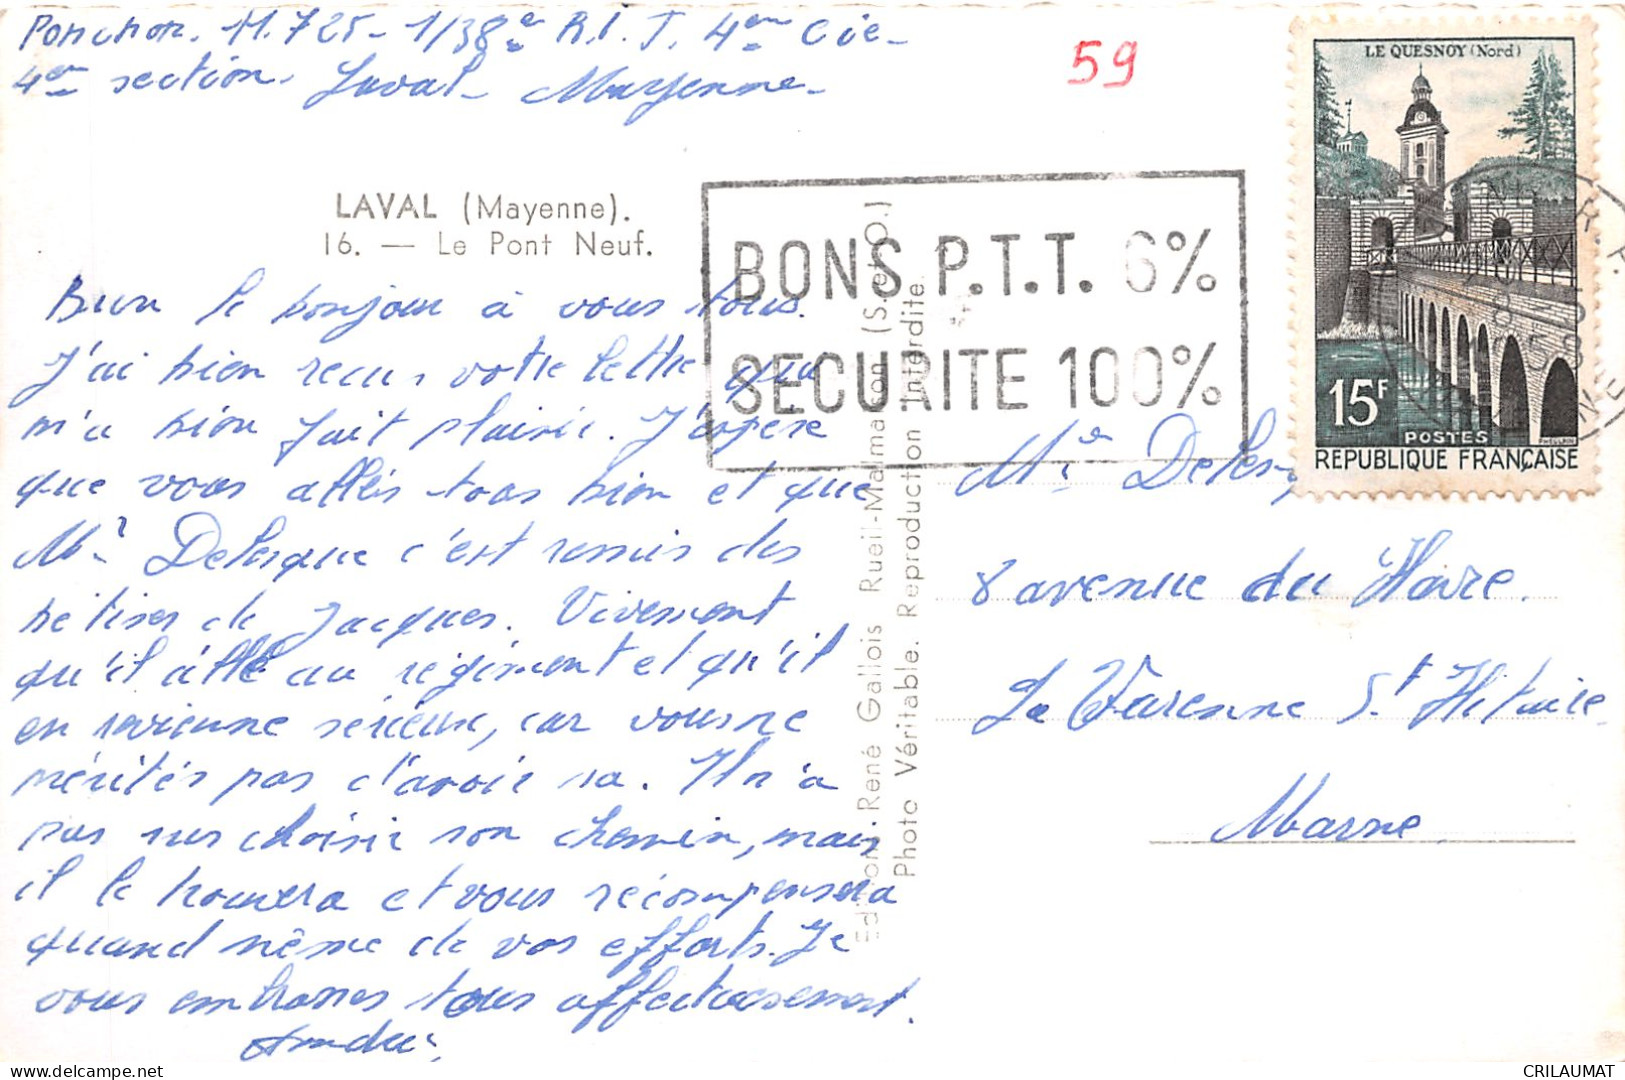 Ponchon. 11.725 - 1/38e R.I.T. 4em Cie -
4em section. Laval - Mayenne -
59
LAVAL (Mayenne).
16. — Le Pont Neuf.
Bien le bonjour à vous tous.
J'ai bien recus votre lettre qui
m'a bien fait plaisir. J'espere
que vous allés tous bien et que
Mr Delesque c'est remis des
bêtises de Jacques. Vivement
qu'il aille au régiment et qu'il
en revienne serieux, car vous ne
mérités pas d'avoir sa. Il n'a
pas sus choisir son chemin, mais
il le trouvera et vous récompensera
quand même de vos efforts. Je
vous embrasses tous affectueusement.
André
Edition René Gallois Rueil-Malmaison (S.-et-O.)
Photo Véritable. Reproduction Interdite.
BONS P.T.T. 6%
SECURITE 100%
LE QUESNOY (Nord)
15F
POSTES
REPUBLIQUE FRANÇAISE
8 avenue du Hâvre.
La Varenne St Hilaire
Marne
CRILAUMAT